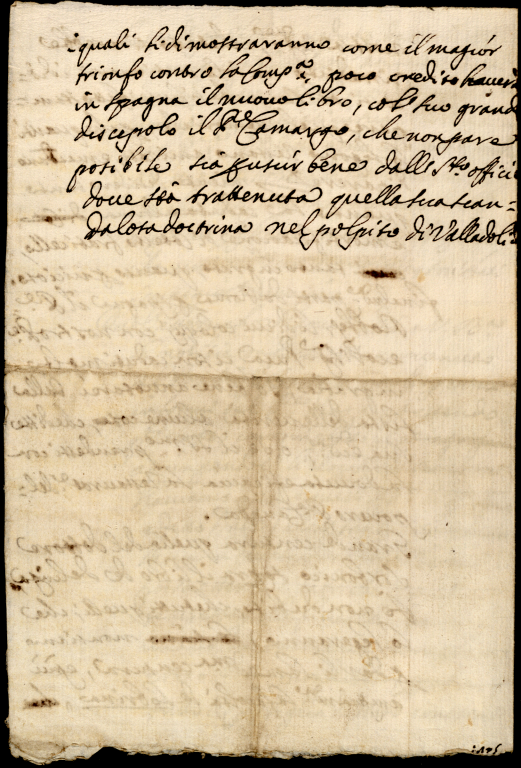 i quali si dimostraranno come il magior
trionfo contro la Comp.a, poco credito havera
in Spagna il nuovo libro, co'l suo grande
discepolo il P.e Camargo, che non pare
posibile sia p usur bene dall S.to offici
dove sta trattenuta quella sua scan-
dalosa doctrina nel polpito di Valladoli